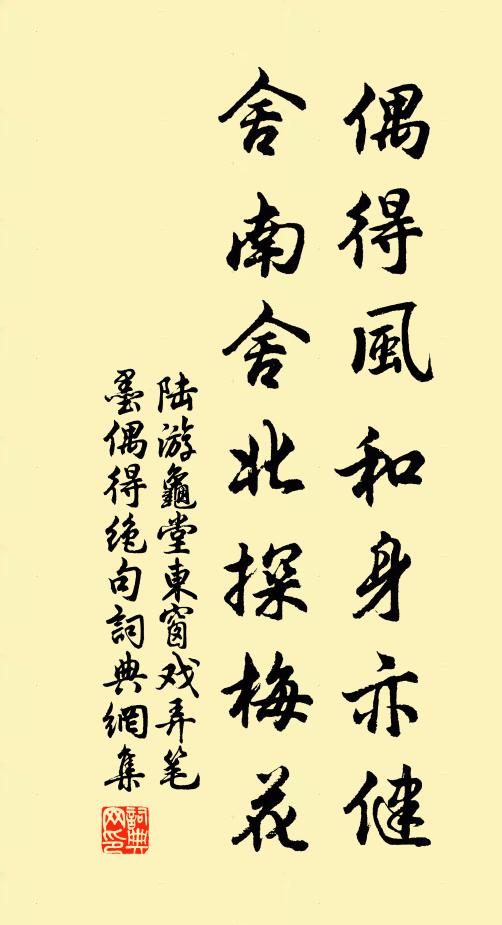 偶得風和身亦健
舍南舍北探梅花
陆游龜堂東窗戏弄笔
墨偶得绝句詞典網集
詞典
网印